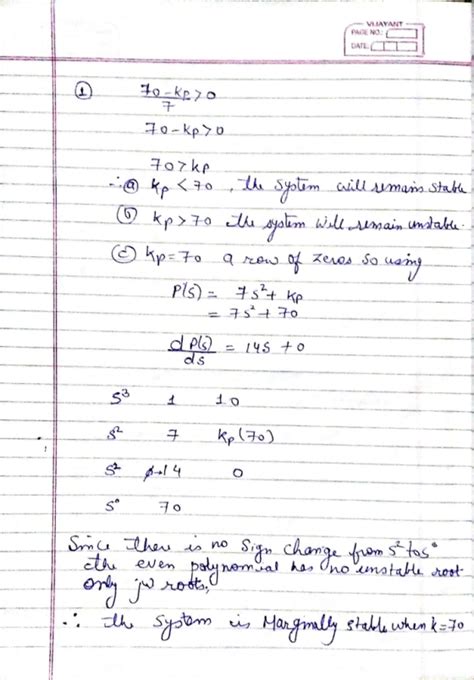 VIJAYANT
PAGE NO.:
DATE:
① (70-kp)/7 > 0
70-kp>0
70>kp
∴ ⓐ kp < 70, the system will remains stable
ⓑ kp>70 the system will remain unstable.
ⓒ kp=70 a row of zeros so using
P(s) = 7s²+ kp
= 7s²+ 70
dP(s)/ds = 14s +0
s³ 1 10
s² 7 kp(70)
s² 14 0
s⁰ 70
Since there is no sign change from s² to s⁰
the even polynomial has no unstable root
only jw roots,
∴ the system is Marginally stable when k=70